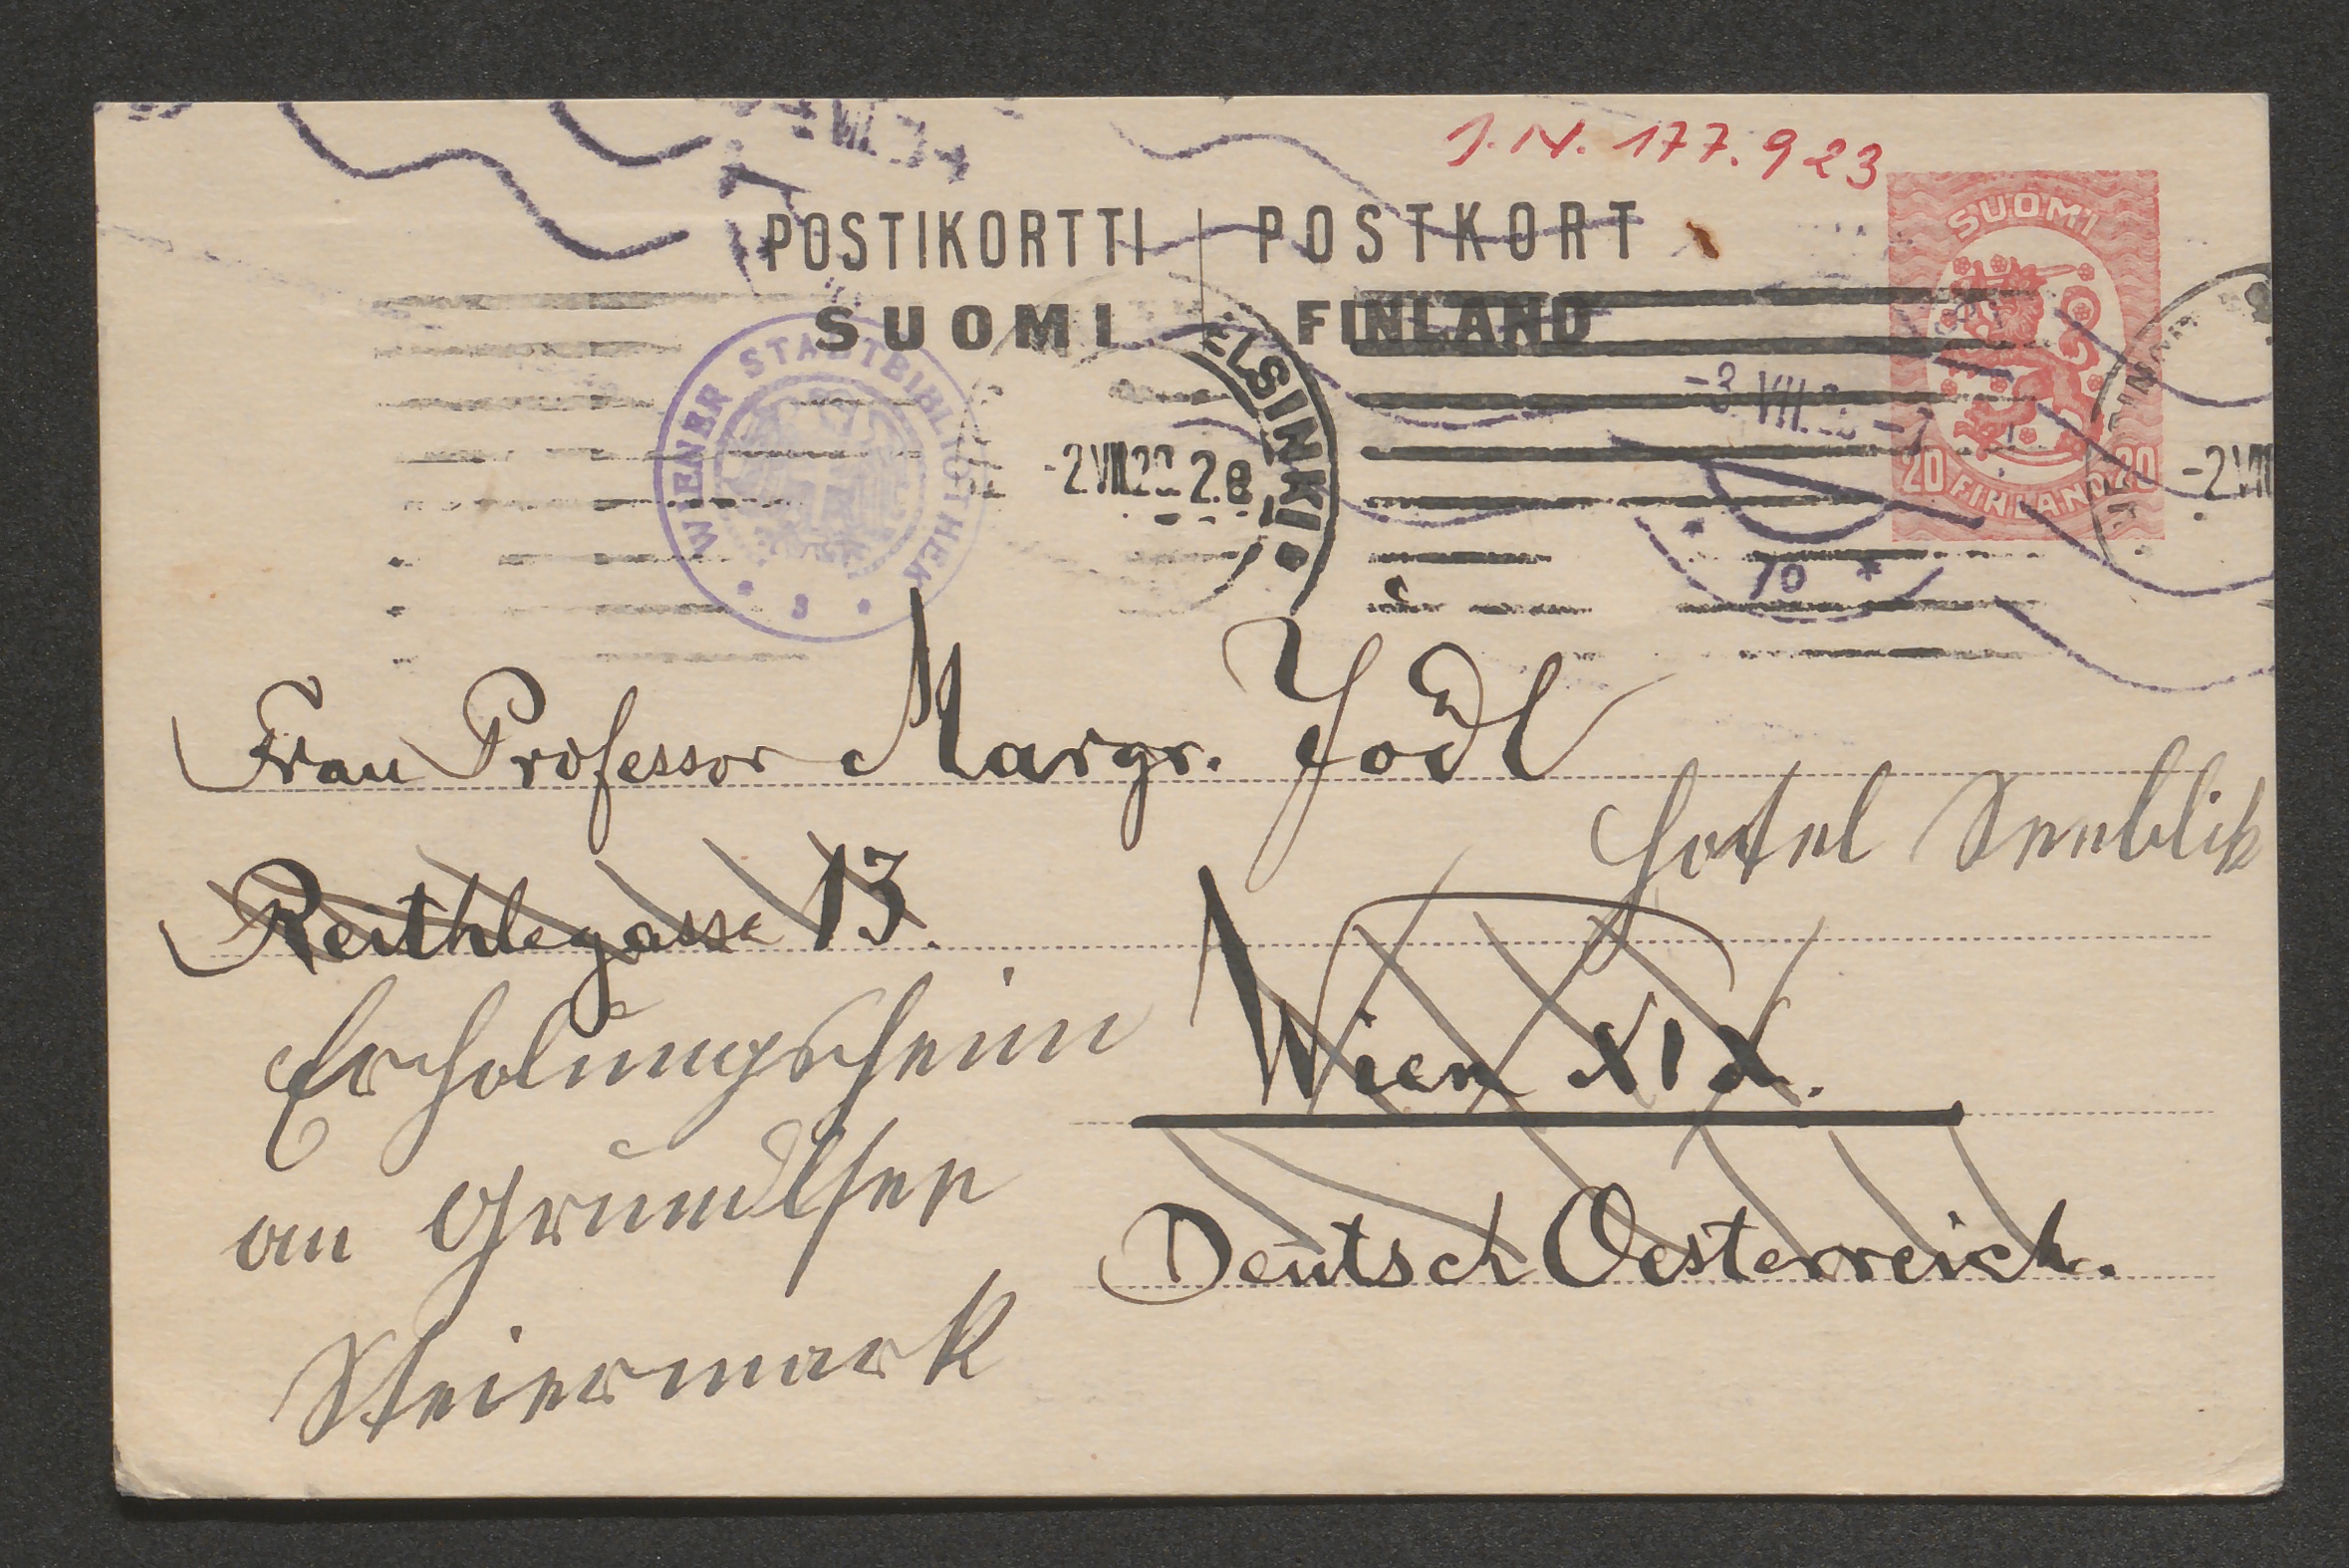 J.N. 177.923
POSTIKORTTI | POSTKORT
SUOMI | FINLAND
SUOMI
20 FINLAND 20
WIENER STADTBIBLIOTHEK
* 3 *
ELSINKI
-2.VIII.20
-3.VIII.
-2.VIII
10 *
Frau Professor Margr. Jodl
Hotel Seeblik
Reithlegasse 13.
Wien XIX.
Erholungsheim
am Grundlsee
Deutsch Oesterreich.
Steiermark